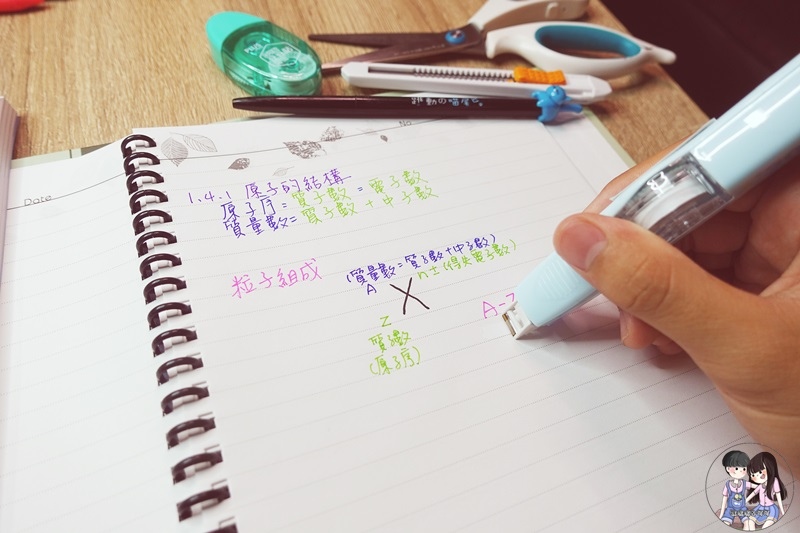 Date
No.
1.4.1 原子的結構
原子序=質子數=電子數
質量數=質子數+中子數
粒子組成
(質量數=質子數+中子數)
A
n±(得失電子數)
X
Z
質子數
(原子序)
A-